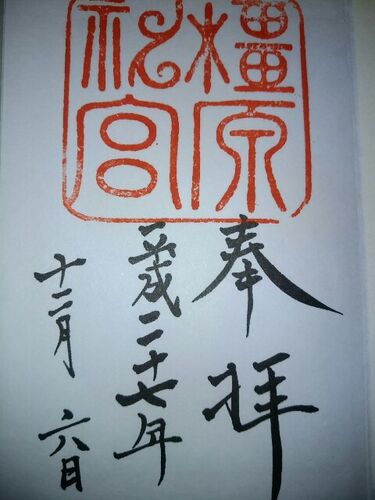 橿原
神宮
奉拝
平成二十七年
十二月六日